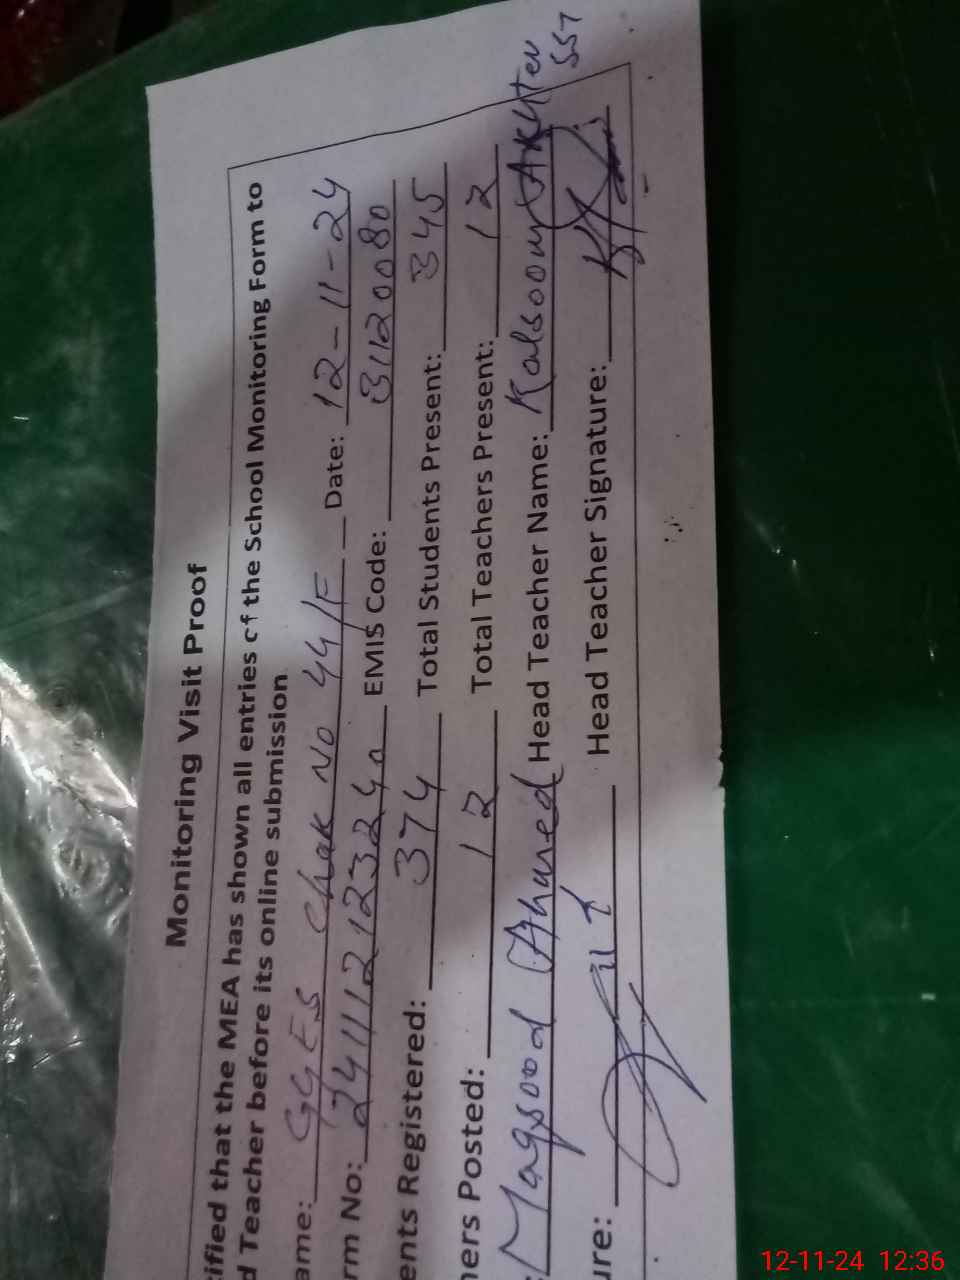 Monitoring Visit Proof
tified that the MEA has shown all entries of the School Monitoring Form to
d Teacher before its online submission
ame: GGES Chak No 44/F Date: 12-11-24
rm No: 241112123240 EMIS Code: 31120080
ents Registered: 374 Total Students Present: 345
hers Posted: 12 Total Teachers Present: 12
: Maqsood Ahmed Head Teacher Name: Kalsoom Akhter SST
ure: Head Teacher Signature:
12-11-24 12:36